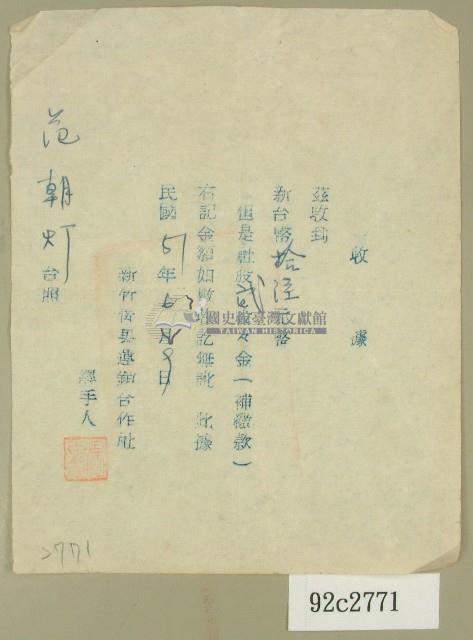 收據
茲收到
新台幣拾陸元
但是社股貳 金(補繳款)
右記金額如數 訖無訛 此據
民國51年6月9日
新竹 縣運銷合作社
經手人
范朝灯 台照
國史館臺灣文獻館
TAIWAN HISTORICA
2771
92c2771